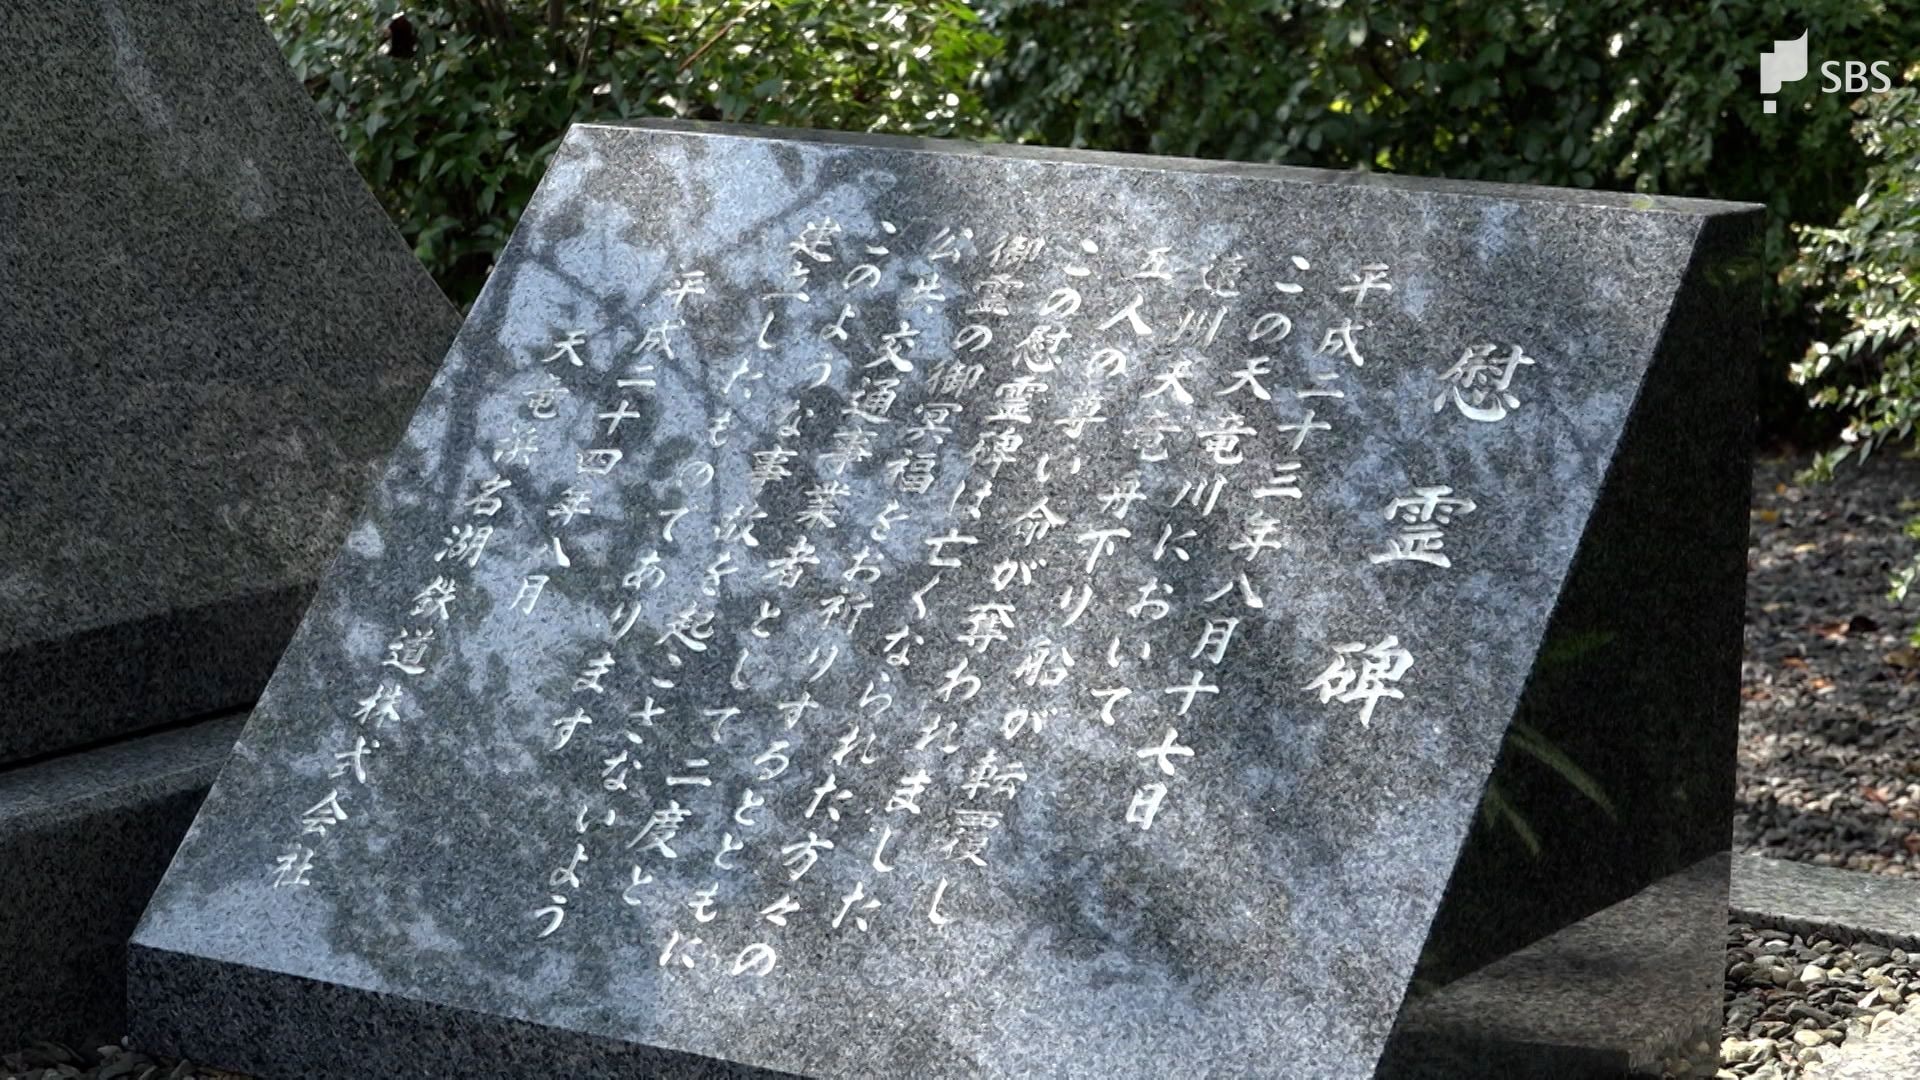 慰霊碑
平成二十三年八月十七日
この天竜川において
遠州天竜舟下り船が転覆し
五人の尊い命が奪われました
この慰霊碑は亡くなられた方々の
御霊の御冥福をお祈りするとともに
公共交通事業者として二度と
このような事故を起こさないよう
建立したものであります
平成二十四年八月
天竜浜名湖鉄道株式会社
SBS